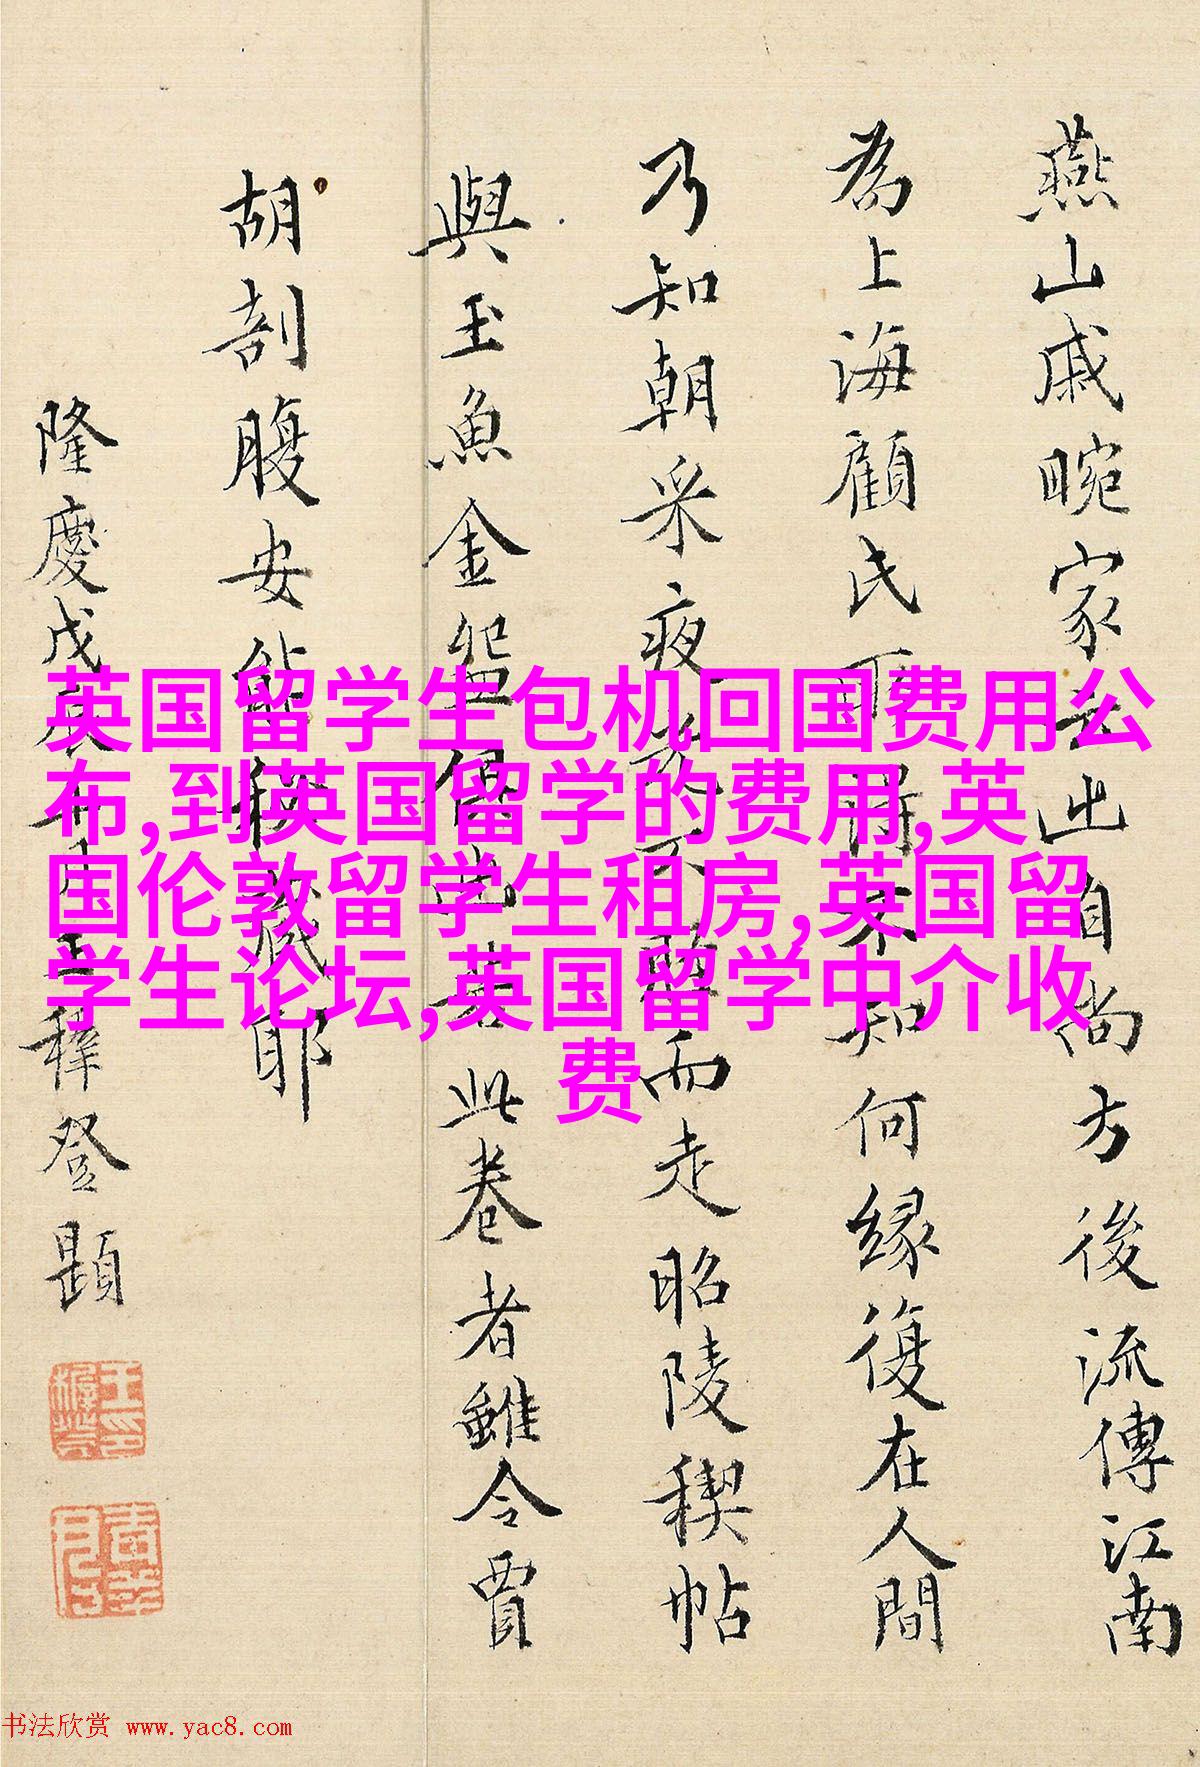 燕山戚畹家云出自尚方後流傳江南
為上海顧氏所得不知何緣復在人間
乃知朝采夜光不脛而走昭陵稧帖
與玉魚金盌俱出若此卷者雖令賈
胡剖腹安能秘藏耶
隆慶戊辰十月王穉登題
英国留学生包机回国费用公
布,到英国留学的费用,英
国伦敦留学生租房,英国留
学生论坛,英国留学中介收
费
书法欣赏 www.yac8.com